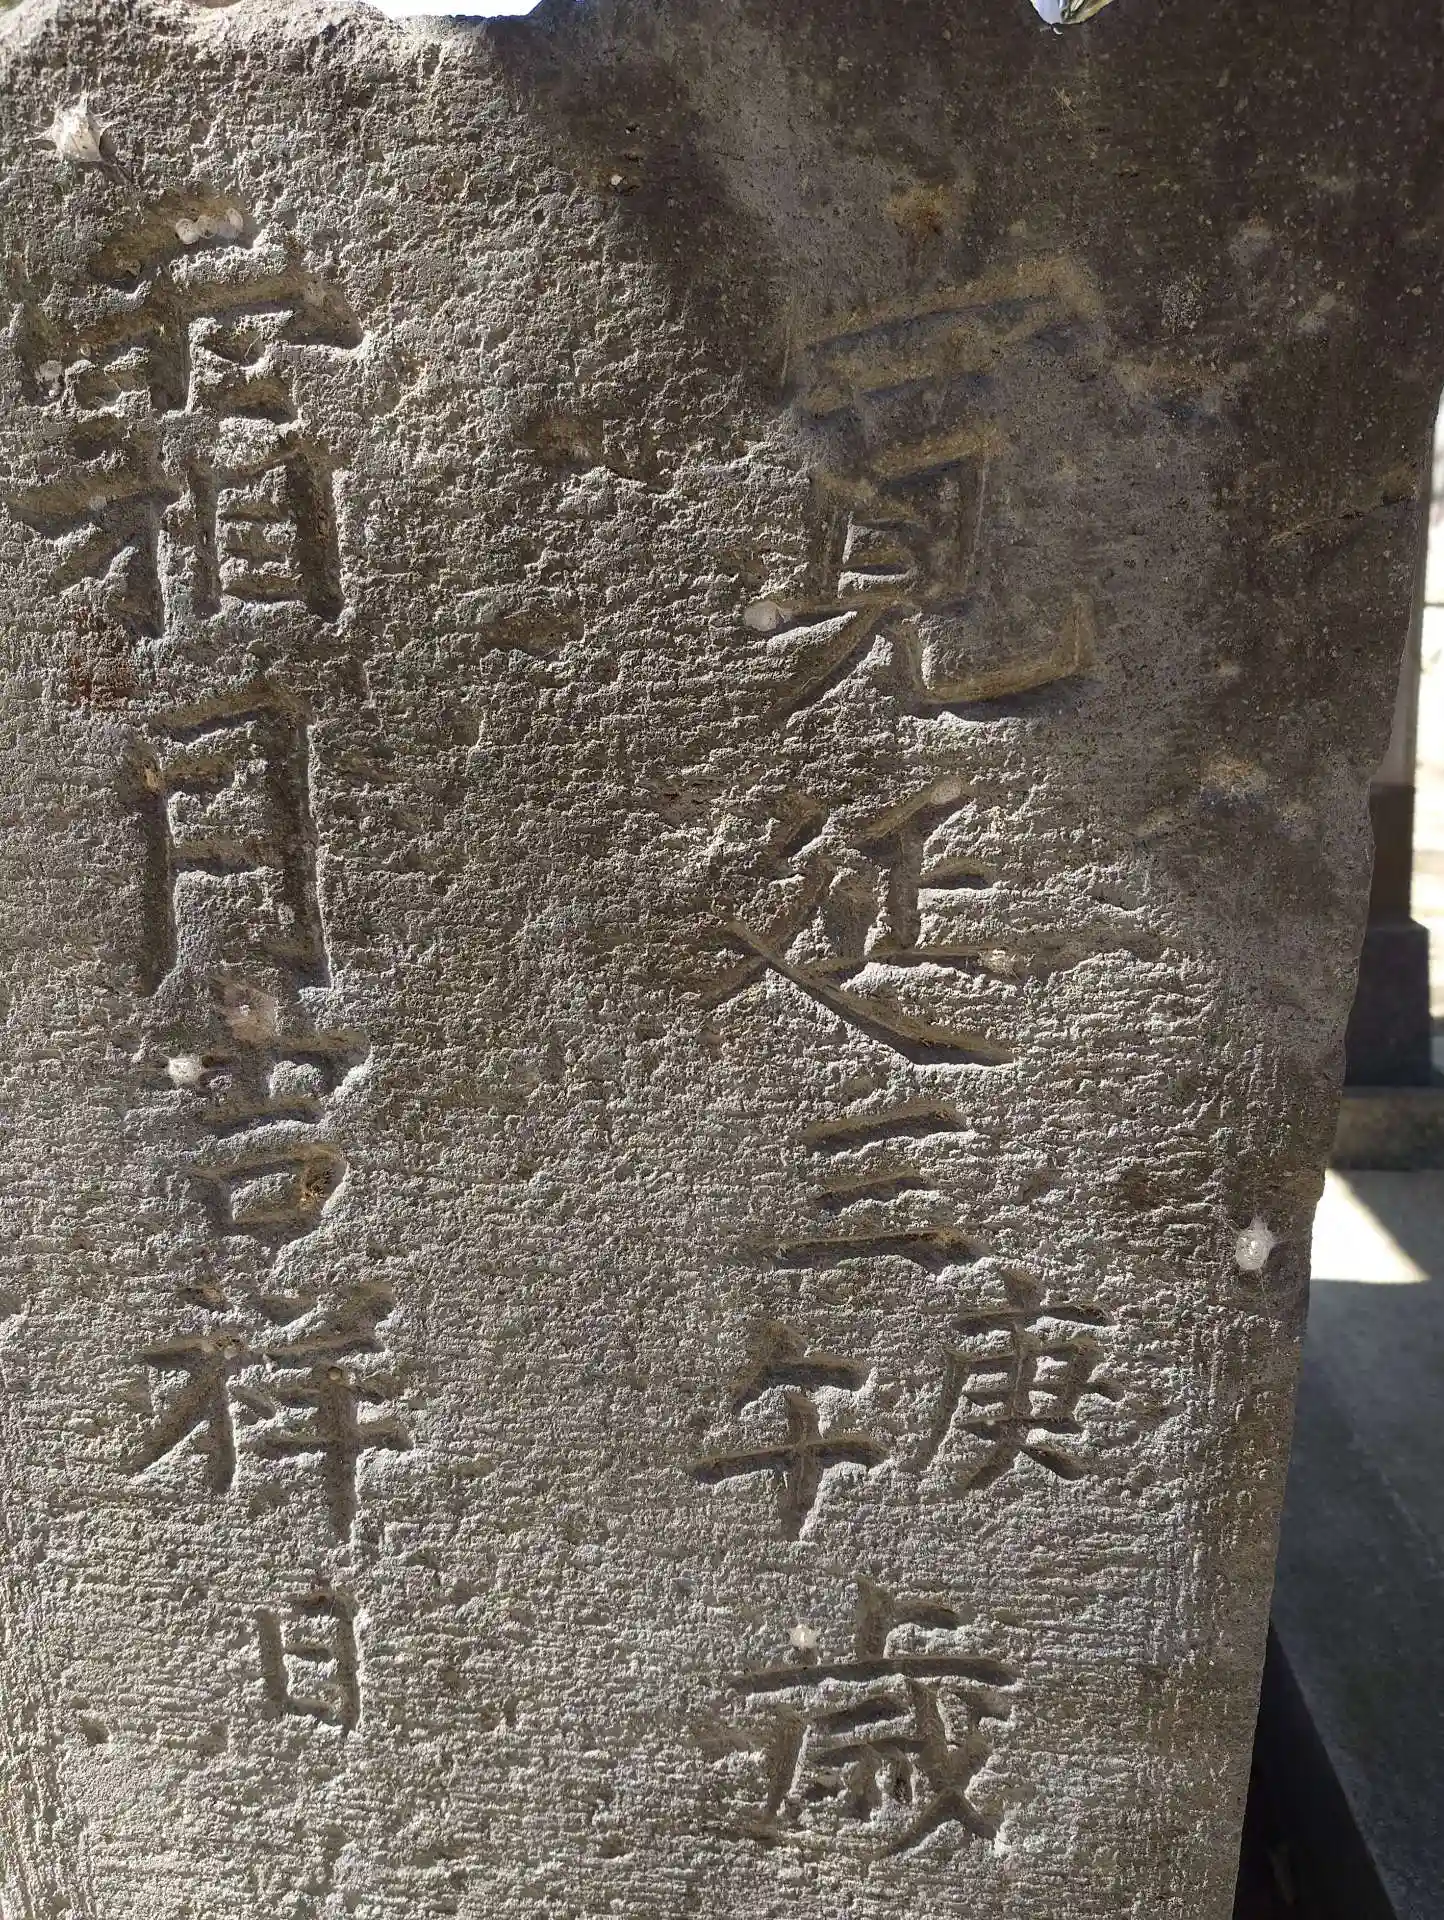 寛延三庚午歳
霜月吉祥日